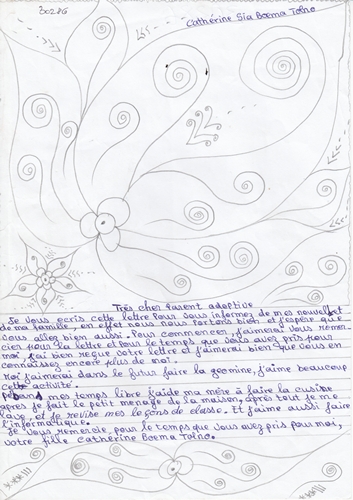 30286
Catherine Sia Boema Tolno
Très cher Parent adoptive
Je vous ecris cette lettre Pour vous informez de mes nouvelles et
de ma famille, en effet nous nous Portons bien et j'espère que
vous alliez bien aussi. Pour commencer, j'aimerai vous remer-
cier pour la lettre et pour le temps que vous avez pris pour
moi, j'ai bien reçue votre lettre et j'aimerai bien que vous en
connaissez encore plus de moi.
Moi j'aimerai dans le futur faire la geomine, j'aime beaucoup
cette activité.
Pendant mes temps libre j'aide ma mère à faire la cuisine
après je fait le petit menage de la maison, après tout je me
lave, et je revise mes leçons de classe. Et j'aime aussi faire
l'informatique.
Je vous remercie, pour le temps que vous avez pris pour moi,
votre fille Catherine Boema Tolno.